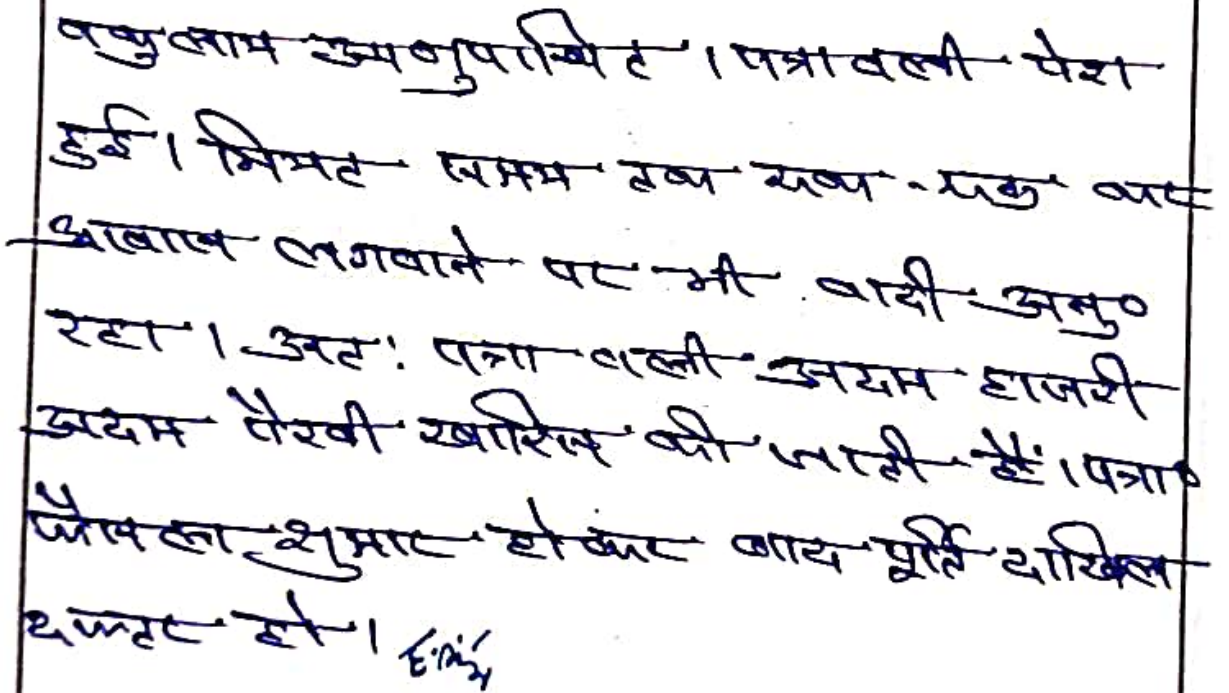 वकुलाय अनुपस्थित । पत्रावली पेश
हुई । नियत समय तक एक-एक कर
आवाज लगवाने पर भी वादी अनु०
रहा । अतः पत्रावली अदम हाजरी
अदम पैरवी खारिज की जाती हैं । पत्रा०
फैसला शुमार होकर बाद पूर्ति दाखिल
दफ्तर हो ।